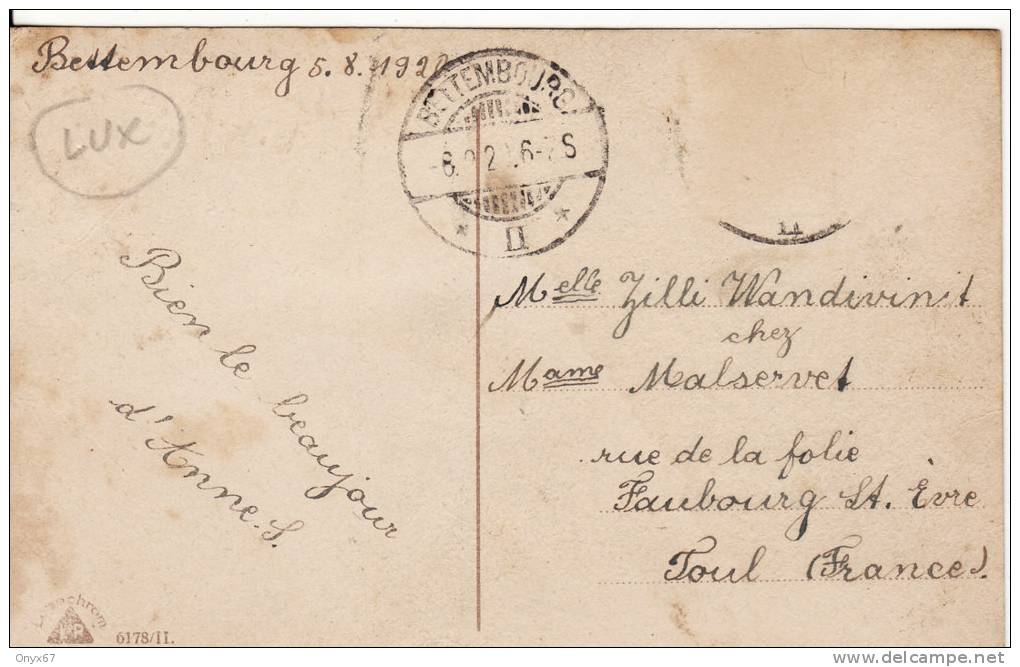 Bettembourg 5.8.1920
LUX
BETTEMBOURG
6-7 S
II
Bien le beaujour
d'Anne. S.
Melle Zilli Wandivinit
chez
Mame Malservet
rue de la folie
Faubourg St. Èvre
Toul (France).
6178/II.
Onyx67
www.delcampe.net